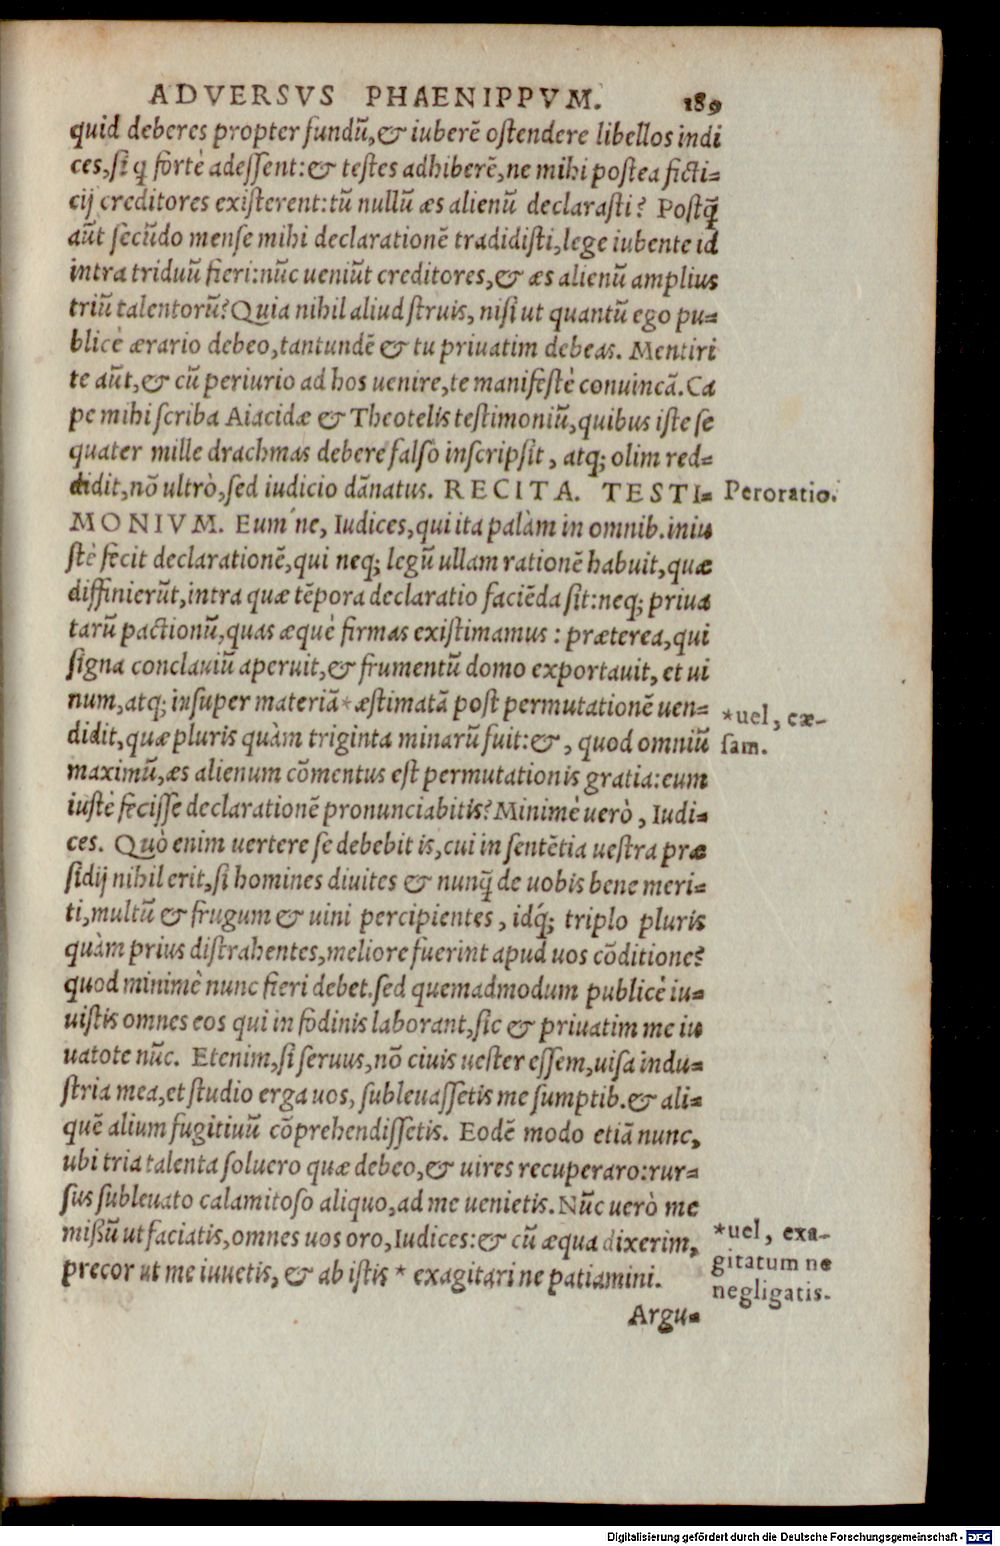 ADVERSVS PHAENIPPVM. 189
quid deberes propter fundũ,& iuberẽ ostendere libellos indi
ces,si q̃ fortè adessent:& testes adhiberẽ,ne mihi postea ficti-
cij creditores existerent:tũ nullũ æs alienũ declarasti? Postq̃
aũt secũdo mense mihi declarationẽ tradidisti,lege iubente id
intra triduũ fieri:nũc ueniũt creditores,& æs alienũ amplius
triũ talentorũ?Quia nihil aliud struis, nisi ut quantũ ego pu-
blicè ærario debeo,tantundẽ & tu priuatim debeas. Mentiri
te aũt,& cũ periurio ad hos uenire,te manifestè conuincã.Ca
pe mihi scriba Aiacidæ & Theotelis testimoniũ,quibus iste se
quater mille drachmas debere falsò inscripsit, atq; olim red-
didit,nõ ultrò,sed iudicio dãnatus. RECITA. TESTI- Peroratio.
MONIVM. Eum´ne, Iudices,qui ita palàm in omnib.iniu
stè fecit declarationẽ,qui neq; legũ ullam rationẽ habuit,quæ
diffinierũt,intra quæ tẽpora declaratio faciẽda sit:neq; priua
tarũ pactionũ,quas æquè firmas existimamus : præterea,qui
signa conclauiũ aperuit,& frumentũ domo exportauit, et ui
num,atq; insuper materiã*æstimatã post permutationẽ uen- *uel, cæ-
didit,quæ pluris quàm triginta minarũ fuit:&, quod omniũ sam.
maximũ,æs alienum cõmentus est permutationis gratia:eum
iustè fecisse declarationẽ pronunciabitis?Minimè uerò, Iudi-
ces. Quò enim uertere se debebit is,cui in sentẽtia uestra præ
sidij nihil erit,si homines diuites & nunq̃ de uobis bene meri-
ti,multũ & frugum & uini percipientes, idq́; triplo pluris
quàm prius distrahentes,meliore fuerint apud uos cõditione?
quod minimè nunc fieri debet.sed quemadmodum publicè iu-
uistis omnes eos qui in fodinis laborant,sic & priuatim me iu
uatote nũc. Etenim,si seruus,nõ ciuis uester essem,uisa indu-
stria mea,et studio erga uos, subleuassetis me sumptib.& ali-
quẽ alium fugitiuũ cõprehendissetis. Eodẽ modo etiã nunc,
ubi tria talenta soluero quæ debeo,& uires recuperaro:rur-
sus subleuato calamitoso aliquo,ad me uenietis.Nũc uerò me
mißũ ut faciatis,omnes uos oro,Iudices:& cũ æqua dixerim, *uel, exa-
precor ut me iuuetis, & ab istis * exagitari ne patiamini. gitatum ne
negligatis.
Argu-
Digitalisierung gefördert durch die Deutsche Forschungsgemeinschaft - DFG